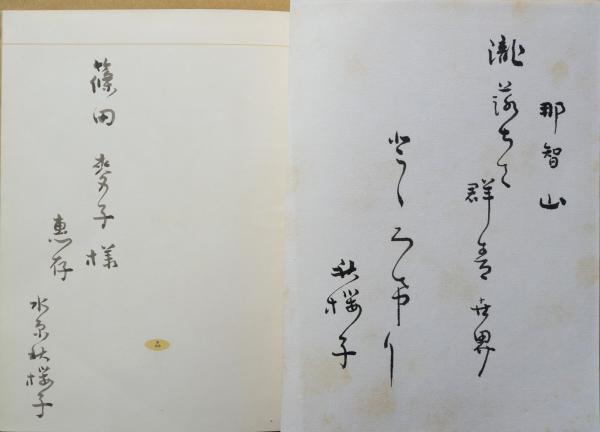 那智山
瀧落ちて
群青世界
とゞろけり
秋櫻子
篠田 子様
惠存
水原秋櫻子